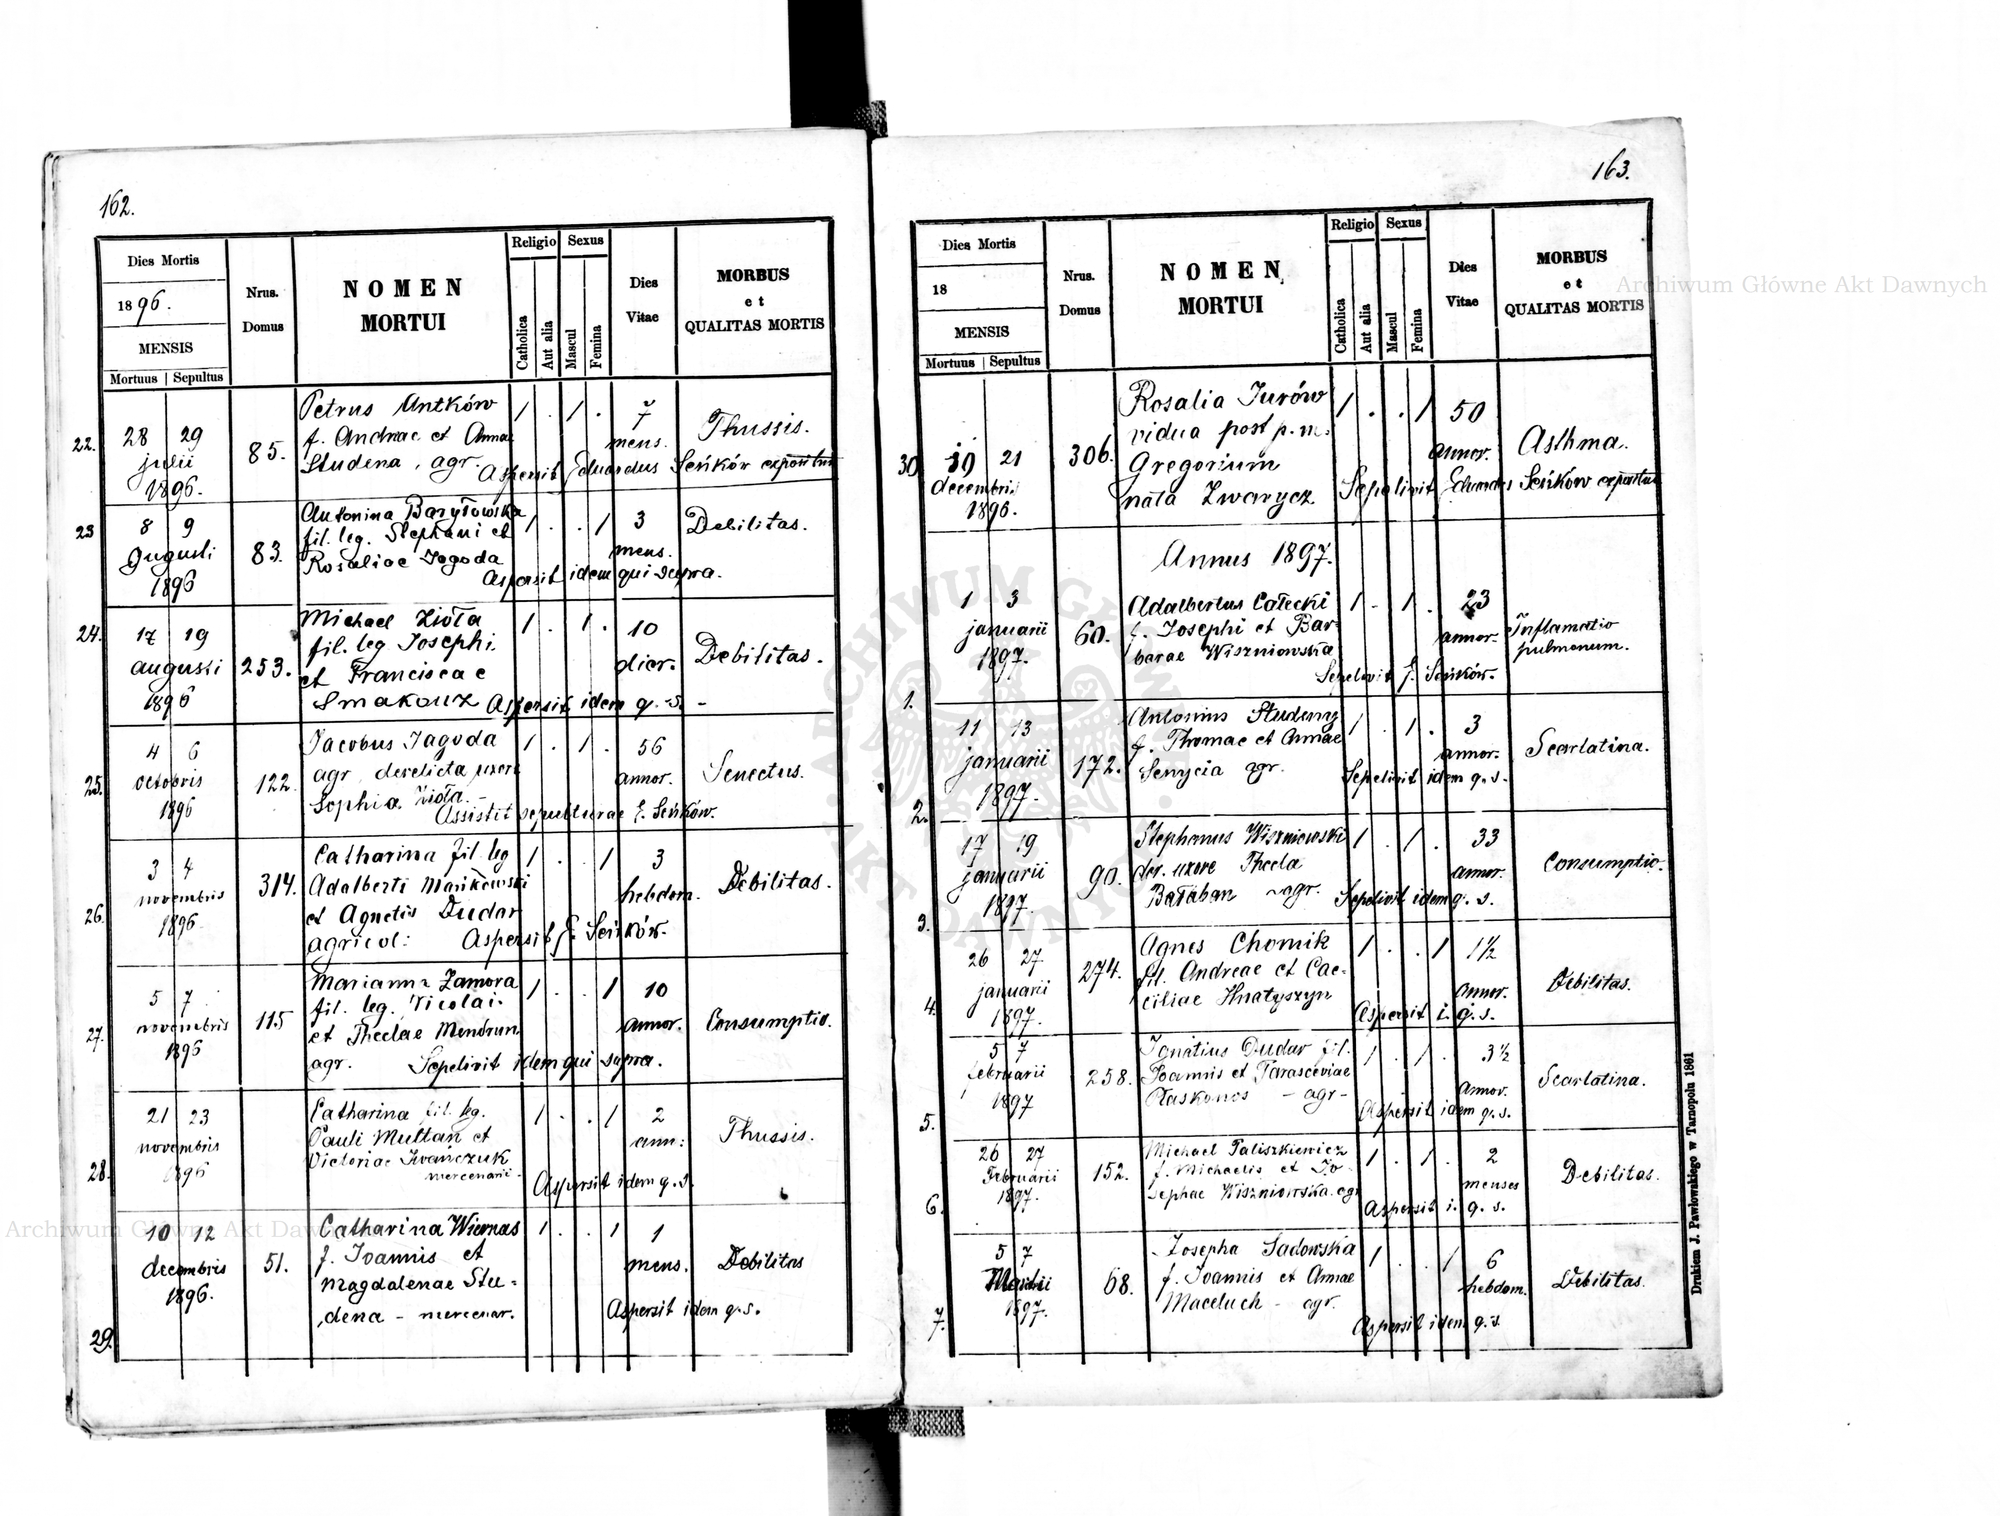 162.
Dies Mortis
1896.
MENSIS
Mortuus | Sepultus
Nrus.
Domus
NOMEN
MORTUI
Religio
Catholica
Aut alia
Sexus
Mascul
Femina
Dies
Vitae
MORBUS
et
QUALITAS MORTIS
22. 28 29 julii 1896. 85.
Petrus Antków 1 . 1 . 7 mens. Thussis.
f. Andreae et Annae
Studena, agr. Aspersit Eduardus Seńków expositus
23 8 9 Augusti 1896 83.
Antonina Baryłowska 1 . . 1 3 mens. Debilitas.
fil. leg. Stephani et
Rosaliae Jagoda
Aspersit idem qui supra.
24. 17 19 augusti 1896 253.
Michael Zioła 1 . 1 . 10 dier. Debilitas.
fil. leg Josephi
et Franciscae
Smakouz Aspersit idem q. s. -
25. 4 6 octobris 1896 122.
Jacobus Jagoda 1 . 1 . 56 annor. Senectus.
agr. derelicta uxore
Sophia Zioła.-
Assistit sepulturae E. Seńków.
26. 3 4 novembris 1896. 314.
Catharina fil. leg 1 . . 1 3 hebdom. Debilitas.
Adalberti Mańkowski
et Agnetis Dudar
agricol: Aspersit E. Seńków.
27. 5 7 novembris 1896 115
Marianna Zamora 1 . . 1 10 annor. Consumptio.
fil. leg. Nicolai
et Theclae Mendrun
agr. Sepelivit idem qui supra.
28. 21 23 novembris 1896
Catharina fil. leg. 1 . . 1 2 ann: Thussis.
Pauli Multan et
Victoriae Iwańczuk
mercenarii.
Aspersit idem q. s.
29. 10 12 decembris 1896. 51.
Catharina Wiernas 1 . . 1 1 mens. Debilitas
f. Joannis et
Magdalenae Stu-
dena - mercenar. Aspersit idem q. s.
163.
Dies Mortis
18
MENSIS
Mortuus | Sepultus
Nrus.
Domus
NOMEN
MORTUI
Religio
Catholica
Aut alia
Sexus
Mascul
Femina
Dies
Vitae
MORBUS
et
QUALITAS MORTIS
30. 19 21 decembris 1896. 306.
Rosalia Jurów 1 . . 1 50 annor. Asthma.
vidua post p. m.
Gregorium
nata Zwarycz Sepelivit Eduardus Seńków expositus
Annus 1897.
1. 1 3 januarii 1897. 60.
Adalbertus Całecki 1 . 1 . 23 annor. Inflamatio pulmonum.
f. Josephi et Bar-
barae Wiszniowska
Sepelivit E. Seńków.
2. 11 13 januarii 1897. 172.
Antonius Studeny 1 . 1 . 3 annor. Scarlatina.
f. Thomae et Annae
Senycia agr. Sepelivit idem q. s.
3. 17 19 januarii 1897. 90.
Stephanus Wiszniowski 1 . 1 . 33 annor. Consumptio.
der. uxore Thecla
Bałaban agr. Sepelivit idem q. s.
4. 26 27 januarii 1897. 274.
Agnes Chomik 1 . . 1 1 1/2 annor. Debilitas.
fil. Andreae et Cae-
ciliae Hnatyszyn Aspersit i. q. s.
5. 5 7 februarii 1897 258.
Ignatius Dudar fil. 1 . 1 . 3 1/2 Annor. Scarlatina.
Joannis et Parasceviae
Płaskonos - agr- Aspersit idem q. s.
6. 26 27 Februarii 1897. 152.
Michael Paliszkiewicz 1 . 1 . 2 menses Debilitas.
f. Michaelis et Jo-
sephae Wiszniowska. agr
Aspersit i. q. s.
7. 5 7 Martii 1897. 68.
Josepha Sadowska 1 . . 1 6 hebdom. Debilitas.
f. Joannis et Annae
Maceluch - agr.
Aspersit idem q. s
Drukiem J. Pawłowskiego w Tarnopolu 1861
Archiwum Główne Akt Dawnych
Archiwum Główne Akt Dawnych
ARCHIWUM GŁÓWNE AKT DAWNYCH